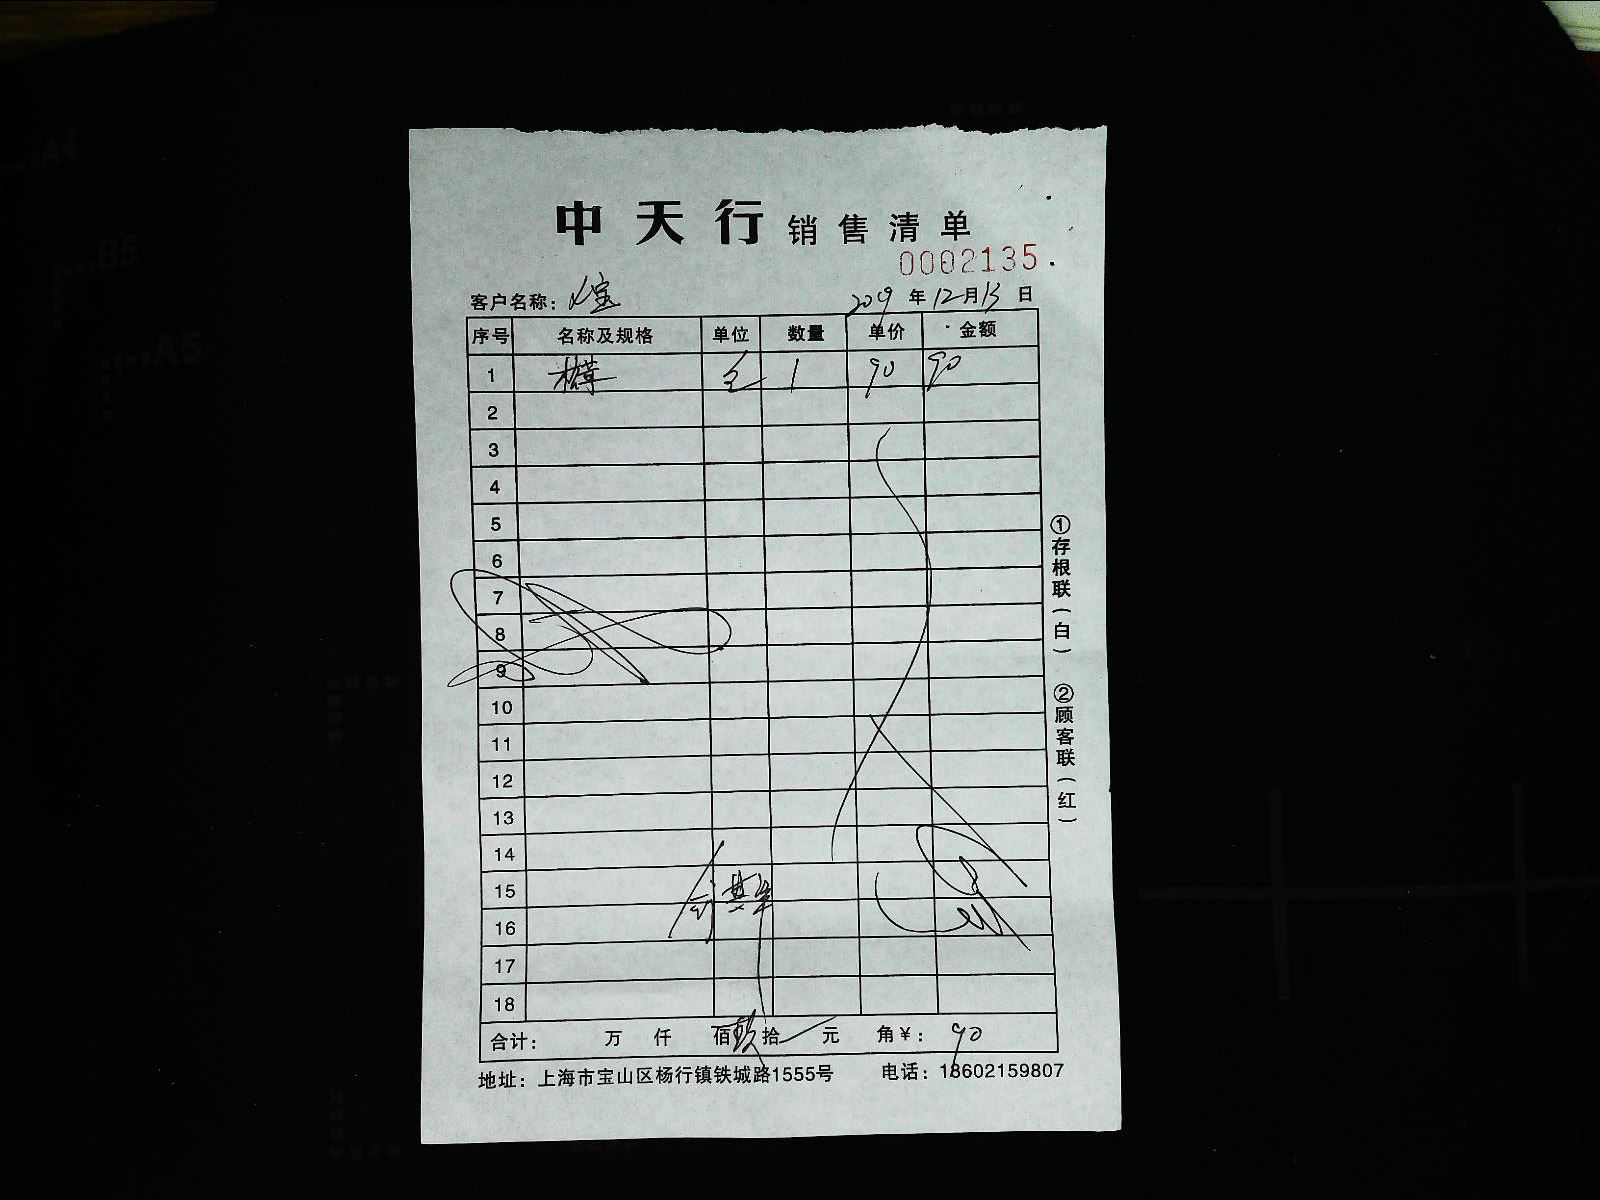 中天行 销售清单
0002135
客户名称： 宝 2019 年 12 月 13 日
序号 名称及规格 单位 数量 单价 金额
1 1 90 90
2
3
4
5
6
7
8
9
10
11
12
13
14
15
16
17
18
合计： 万 仟 佰 玖 拾 元 角 ¥： 90
地址：上海市宝山区杨行镇铁城路1555号 电话：18602159807
①存根联（白）
②顾客联（红）
A4
B5
A5